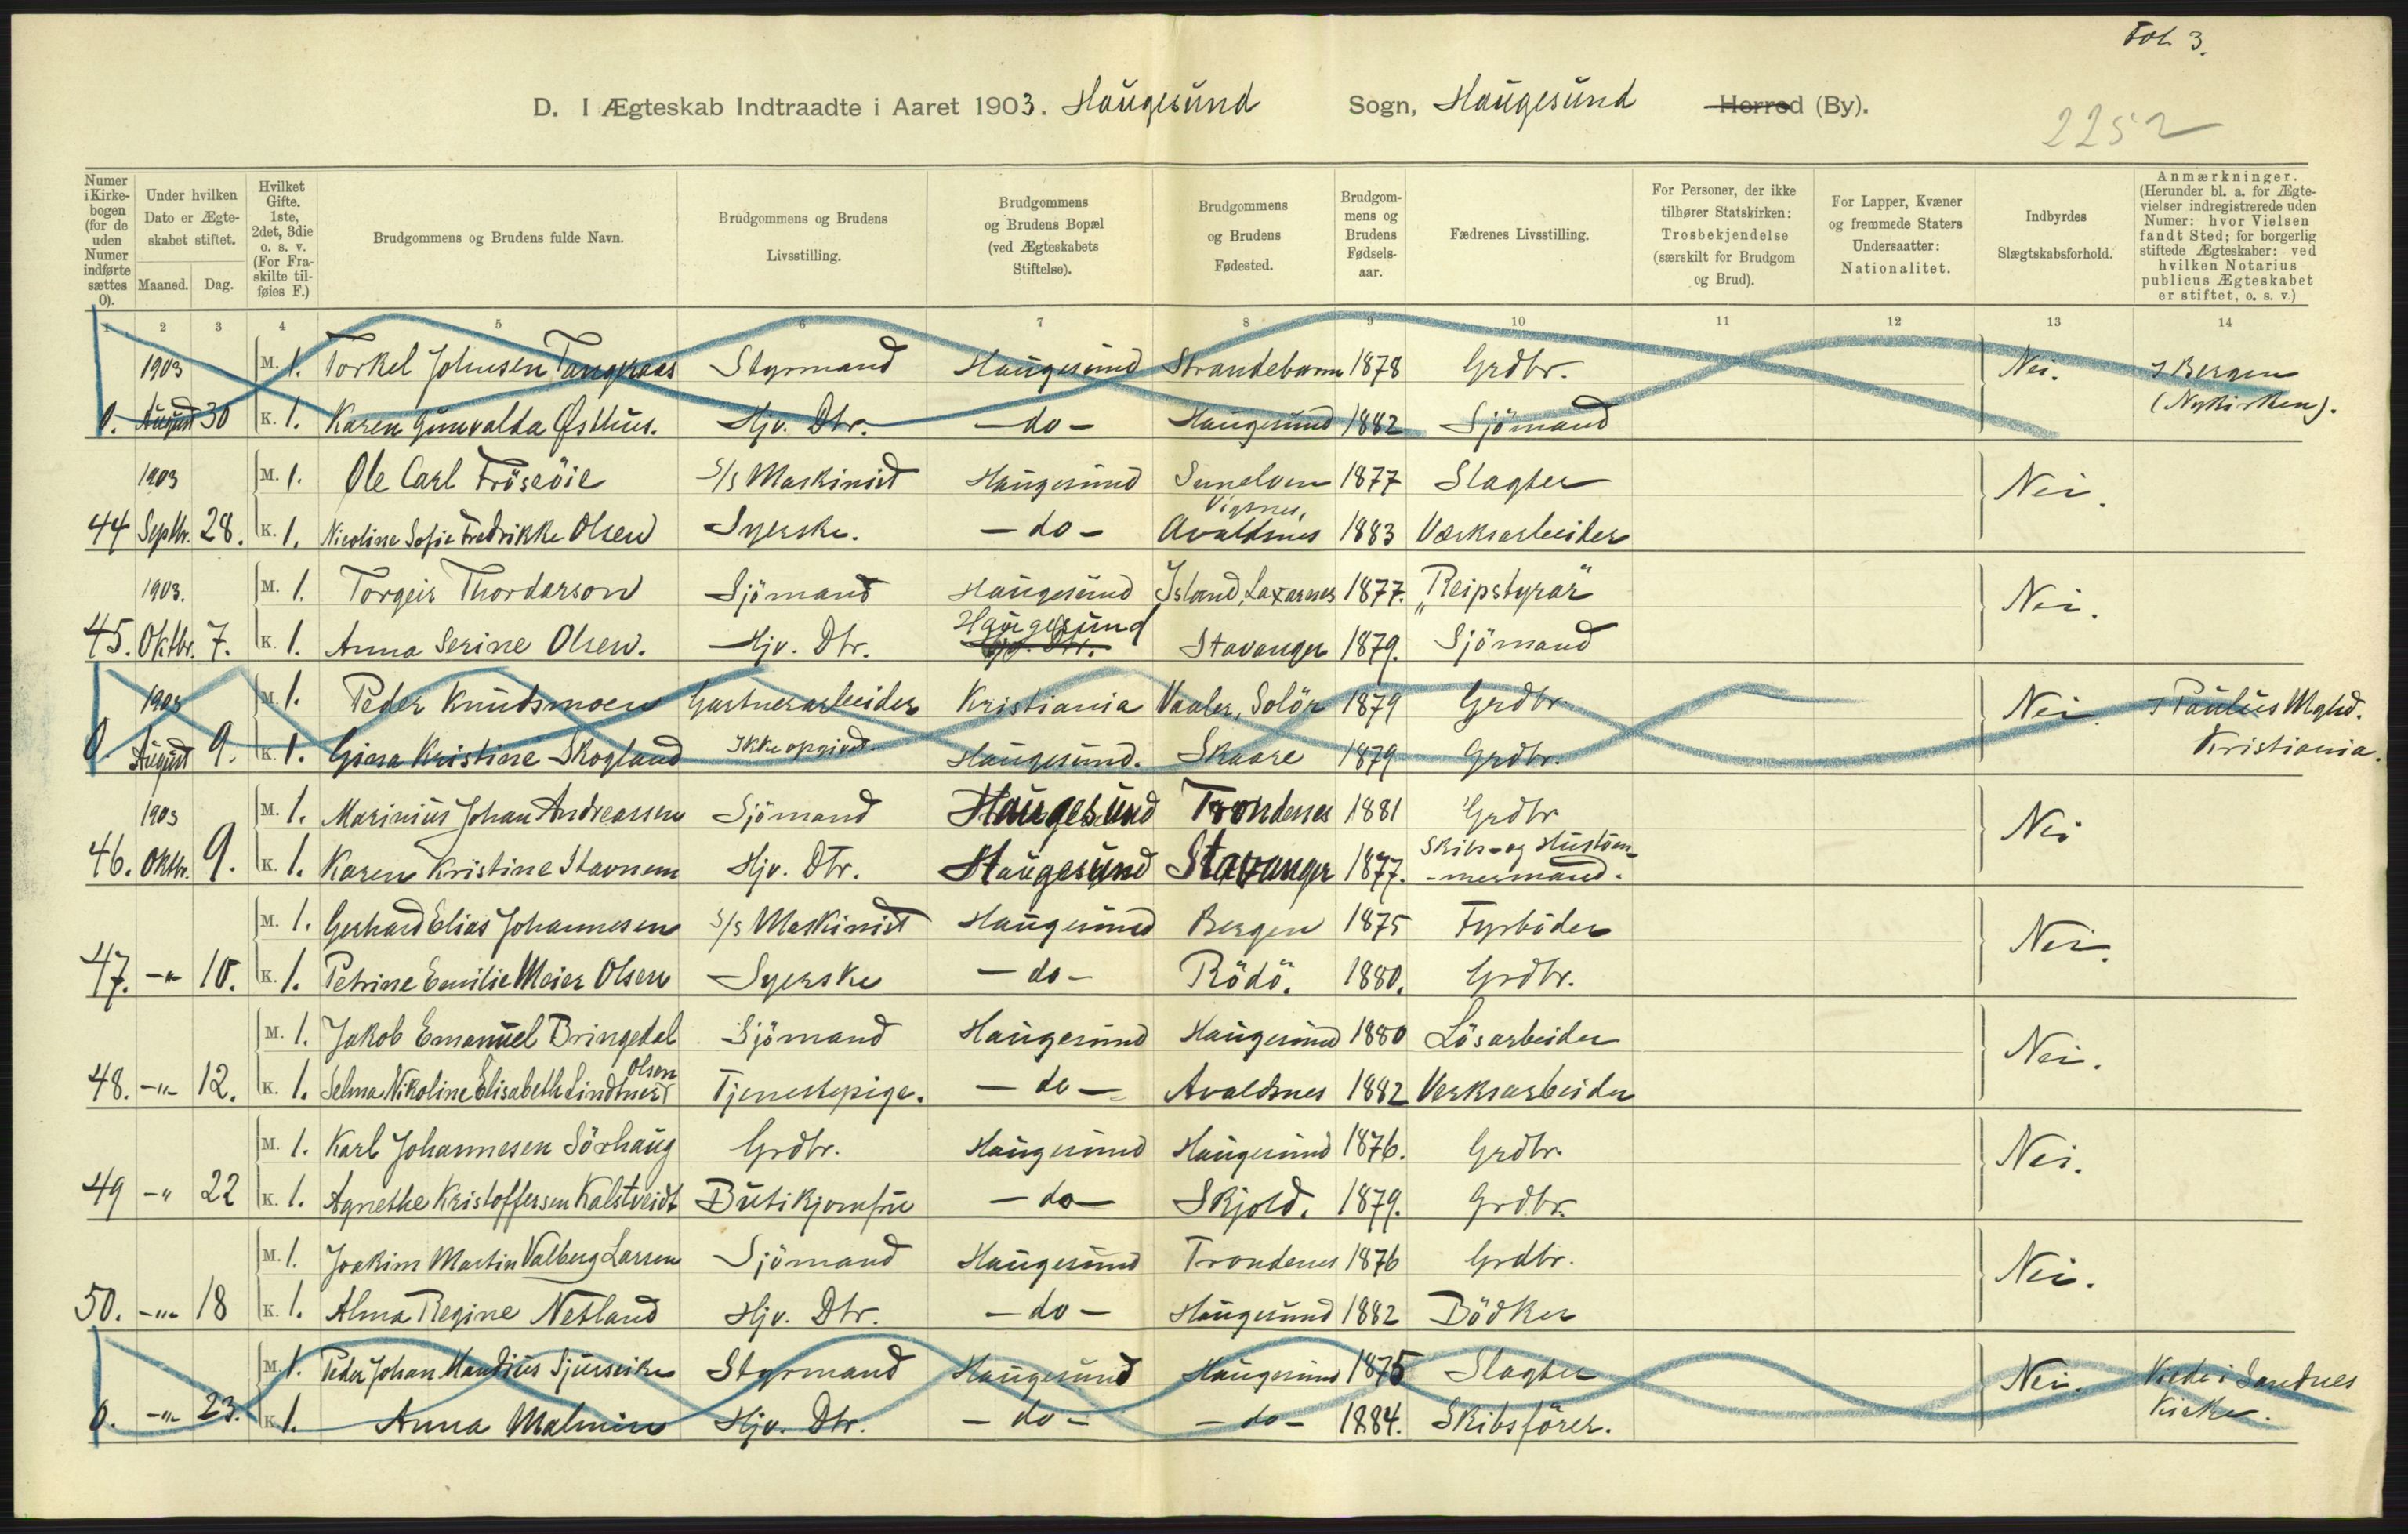 Fol. 3.
D. I Ægteskab Indtraadte i Aaret 1903. Haugesund Sogn, Haugesund Herred (By).
2252
Numer i Kirkebogen (for de uden Numer indførte sættes 0).
Under hvilken Dato er Ægteskabet stiftet.
Maaned. Dag.
Hvilket Gifte. 1ste, 2det, 3die o. s. v. (For Fraskilte tilføies F.)
Brudgommens og Brudens fulde Navn.
Brudgommens og Brudens Livsstilling.
Brudgommens og Brudens Bopæl (ved Ægteskabets Stiftelse).
Brudgommens og Brudens Fødested.
Brudgommens og Brudens Fødselsaar.
Fædrenes Livsstilling.
For Personer, der ikke tilhører Statskirken: Trosbekjendelse (særskilt for Brudgom og Brud).
For Lapper, Kvæner og fremmede Staters Undersaatter: Nationalitet.
Indbyrdes Slægtskabsforhold.
Anmærkninger. (Herunder bl. a. for Ægtevielser indregistrerede uden Numer: hvor Vielsen fandt Sted; for borgerlig stiftede Ægteskaber: ved hvilken Notarius publicus Ægteskabet er stiftet, o. s. v.)
1 2 3 4 5 6 7 8 9 10 11 12 13 14
1903 M. 1. Torkel Johnsen Tangeraas Styrmand Haugesund Strandebarm 1878 Grdbr. Nei. I Bergen
0. August 30 K. 1. Karen Gunvalda Østhus. Hjv. Dtr. - do - Haugesund 1882 Sjömand (Nykirken).
1903 M. 1. Ole Carl Fröseöie S/S Maskinist Haugesund Sunelven 1877 Slagter Nei.
44 Septbr. 28. K. 1. Nicoline Sofie Fredrikke Olsen Syerske. - do - Vigsnes, Avaldsnes 1883 Værksarbeider
1903. M. 1. Torgeir Thordarson Sjömand Haugesund Island, Laxarnes 1877. "Reipstyrar" Nei.
45. Oktbr. 7. K. 1. Anna Serine Olsen. Hjv. Dtr. Haugesund Hjv. Dtr. Stavanger 1879. Sjömand
1903 M. 1. Peder Knudsmoen Gartnerarbeider Kristiania Vaaler, Solör 1879 Grdbr. Nei. I Paulus Mghd.
0. August 9. K. 1. Gina Kristine Skogland Ikke opgivet. Haugesund. Skaare 1879 Grdbr. Kristiania.
1903 M. 1. Marinius Johan Andreassen Sjömand Haugesund Trondenes 1881 Grdbr. Nei
46. Oktbr. 9. K. 1. Karen Kristine Stavnem Hjv. Dtr. Haugesund Stavanger 1877. Skibs- og Hustöm-
-mermand.
M. 1. Gerhard Elias Johannesen S/S Maskinist Haugesund Bergen 1875 Fyrböder Nei.
47. -"- 10. K. 1. Petrine Emilie Meier Olsen Syerske - do - Rödö. 1880. Grdbr.
M. 1. Jakob Emanuel Bringedal Sjömand Haugesund Haugesund 1880 Lösarbeider Nei.
48. -"- 12. K. 1. Selma Nikoline Elisabeth Lindtner Olsen Tjenestepige. - do - Avaldsnes 1882 Verksarbeider
M. 1. Karl Johannesen Sörhaug Grdbr. Haugesund Haugesund 1876. Grdbr. Nei.
49 -" 22 K. 1. Agnethe Kristoffersen Kalstveidt Butikjomfru - do - Skjold. 1879. Grdbr.
M. 1. Joakim Martin Valberg Larsen Sjömand Haugesund Trondenes 1876 Grdbr. Nei.
50. -"- 18 K. 1. Alma Regine Netland Hjv. Dtr. - do - Haugesund 1882 Bödker
M. 1. Peder Johan Mandius Sjurseike Styrmand Haugesund Haugesund 1875 Slagter Nei. Viede i Sandnes
0. -"- 23. K. 1. Anna Malmin Hjv. Dtr. - do - - do - 1884. Skibsförer. Kirke.